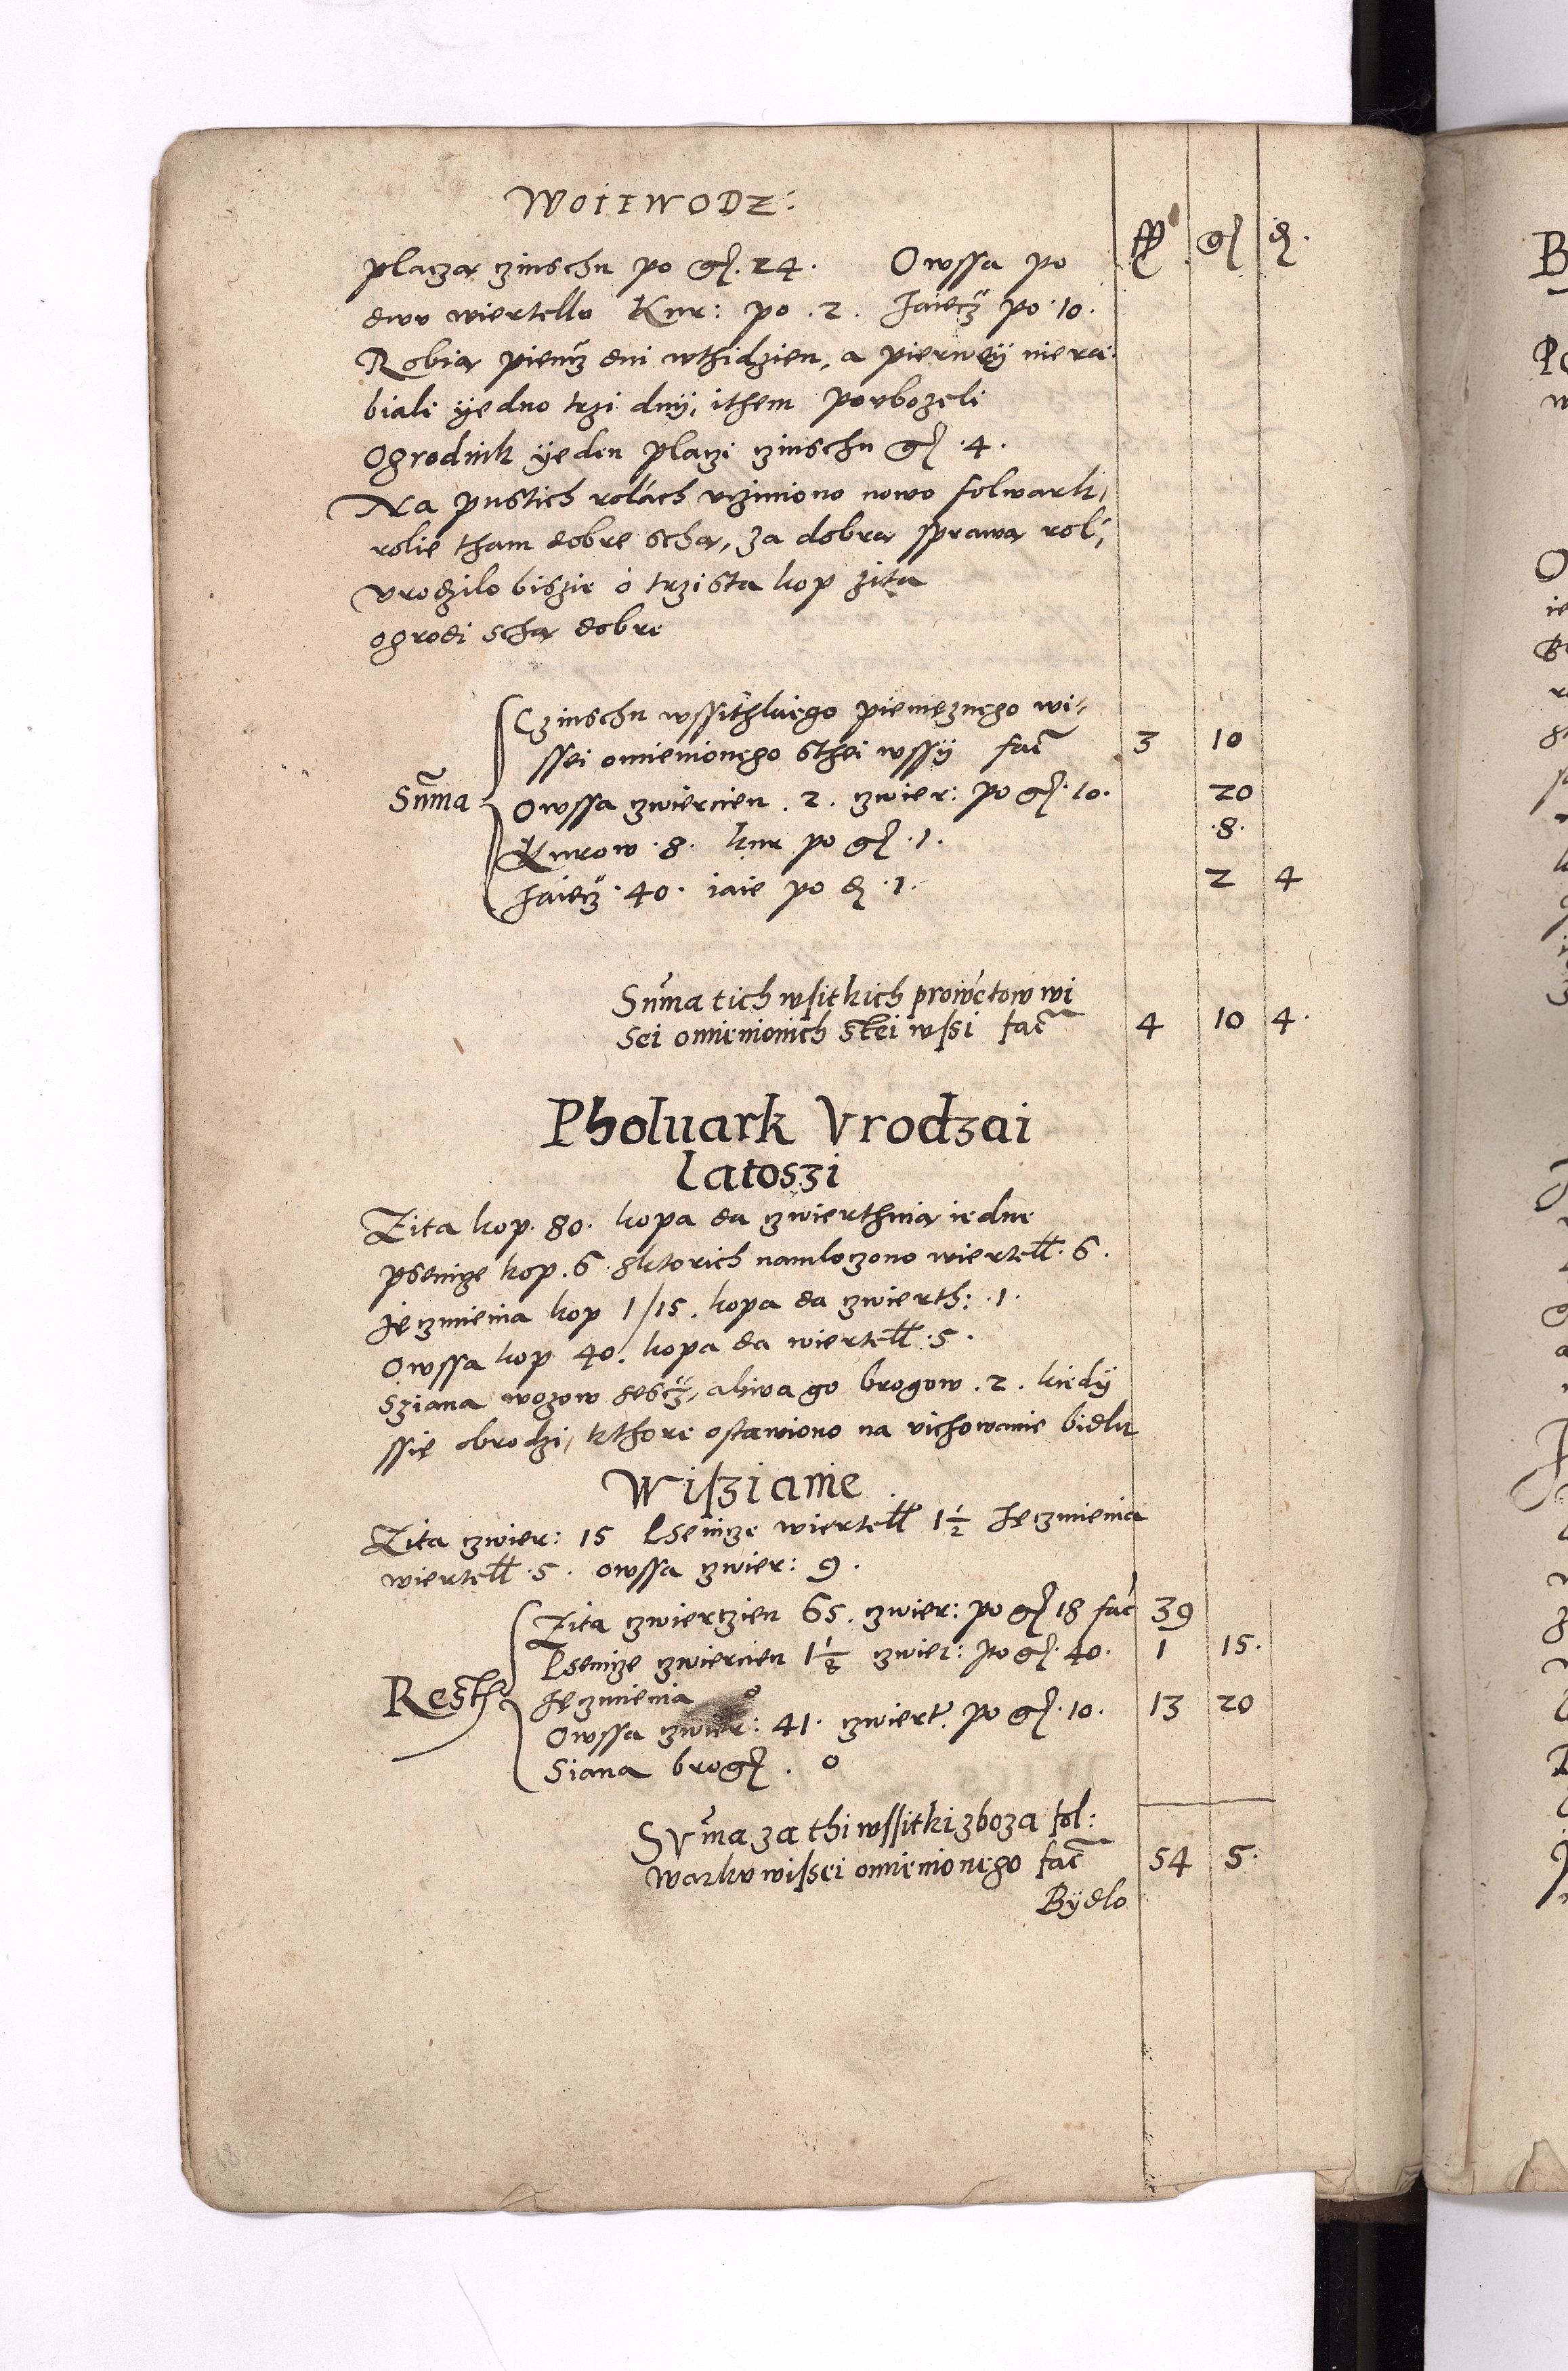 WOIEWODZ:
fl gr d.
placza czinschu po gr. 24. Owssa po
dwu wiertellu Kur: po .2. Jaiecz po .10.
Robia pieńcz dni wthidzien, a pierwey niera
biali yedno trzi dny, ithem povbozeli
Ogrodnik yeden placzi czinschu gr .4.
Na pustich rolach vcziniono nowo folwark,
rolie tham dobre scha, za dobra sprawa rol:
vrodzilo biszie o trzista kop zita
ogrodi scha dobre
Czinschu wssithkiego pienieznego wi-
ssei omienionego sthei wssy fac 3 10
Suma
Owssa czwiercien .2. czwier: po gr. 10. 20
Kurow .8. kur po gr .1. .8.
Jaiecz .40. iaie po d .1. 2 4
Suma tich wsitkich prowetow wi
sei omienionich stei wsi fac 4 10 4.
Pholuark Vrodzai
Latoszi
Zita kop. 80. kopa da czwierthnia iedne
psenicze kop. 6 sktorich namloczono wiertell. 6.
Jeczmienia kop 1/15. kopa da czwierth: .1.
Owssa kop 40. kopa da wiertell .5.
Sziana wozow sescz, abiwa go brogow .2. kiedy
ssie obrodzi, kthore ostawiono na vichowanie bidlu
Wiszianie
Zita czwier: 15 Psenicze wiertell 1 1/2 Jeczmienia
wiertell .5. owssa czwier: 9.
Zita czwierczien 65. czwier: po gr 18 fac 39
Psenicze czwiercien 1 1/8 czwier: po gr. 40. 1 15.
Resth
Jeczmienia 0
Owssa czwier: 41. czwiert. po gr. 10. 13 20
Siana brogr . 0
Suma za thi wssitki zboza fol:
warku wissei omienionego fac 54 5.
Bydlo